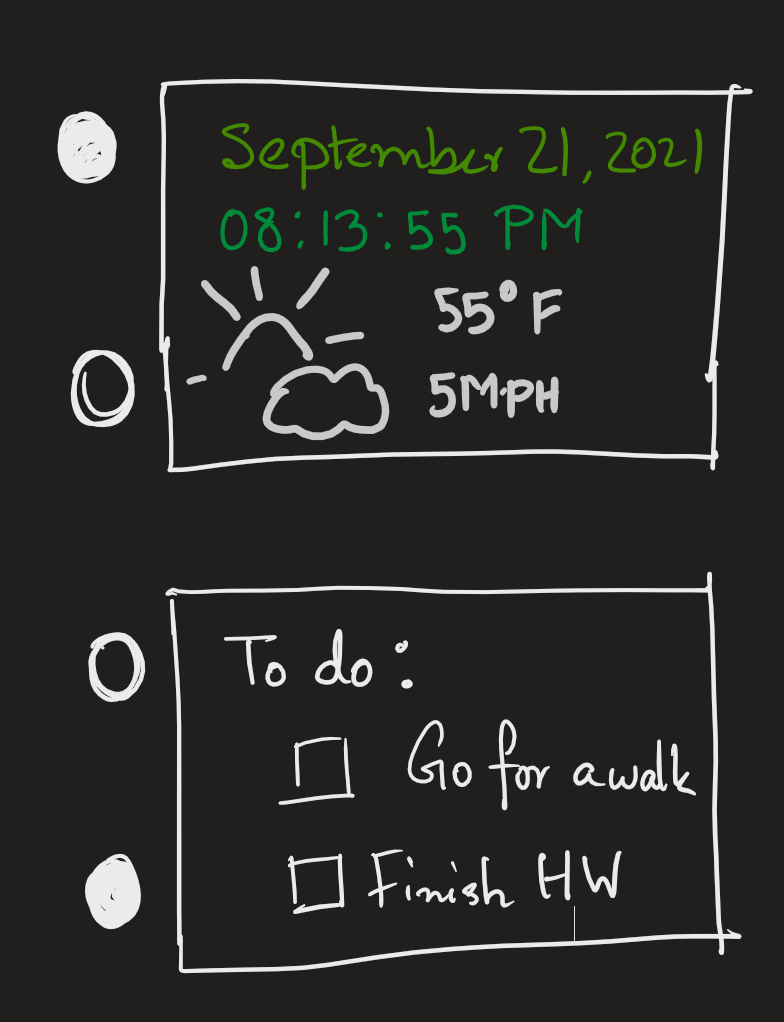 September 21, 2021
08:13:55 PM
55°F
5MPH
To do:
Go for a walk
Finish HW